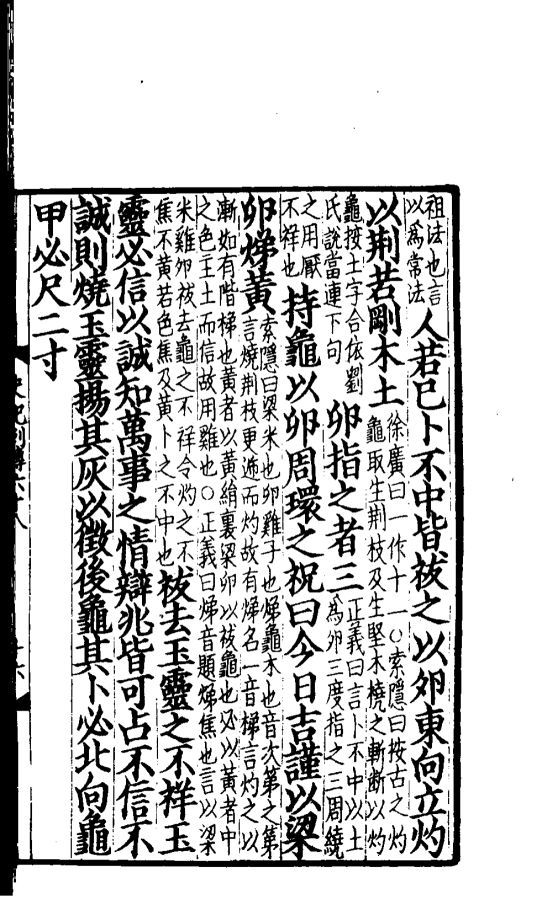 祖法也言
以為常法
人若已卜不中皆祓之以卵東向立灼
以荆若剛木土
徐廣曰一作十一○索隱曰按古之灼
龜取生荆枝及生堅木橈之斬断以灼
龜按土字合依劉
氏說當連下句
卵指之者三
正義曰言卜不中以土
為卵三度指之三周繞
之用厭
不祥也
持龜以卵周環之祝曰今日吉謹以梁
卵焍黄
索隱曰梁米也卵雞子也焍龜木也音次第之第
言燒荆枝更遞而灼故有焍名一音梯言灼之以
漸如有階梯也黄者以黄絹裹梁卵以祓龜也必以黄者中
之色主土而信故用雞也○正義曰焍音題焍焦也言以梁
米雞卵祓去龜之不祥令灼之不
焦不黄若色焦及黄卜之不中也
祓去玉靈之不祥玉
靈必信以誠知萬事之情辯兆皆可占不信不
誠則燒玉靈揚其灰以徵後龜其卜必北向龜
甲必尺二寸